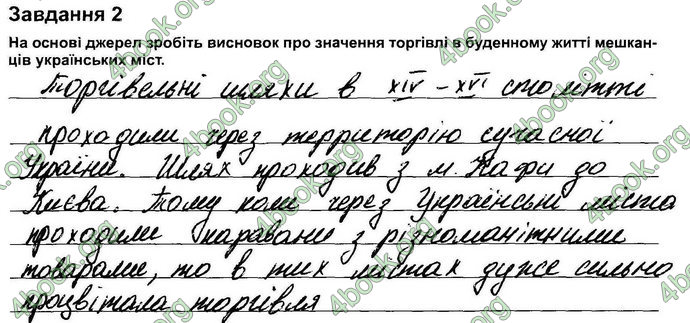 Завдання 2
На основі джерел зробіть висновок про значення торгівлі в буденному житті мешкан-
ців українських міст.
Торгівельні шляхи в XIV – XVI столітті
проходили через територію сучасної
України. Шлях проходив з м. Кафи до
Києва. Тому коли через Українські міста
проходили каравани з різноманітними
товарами, то в тих містах дуже сильно
процвітала торгівля
4book.org